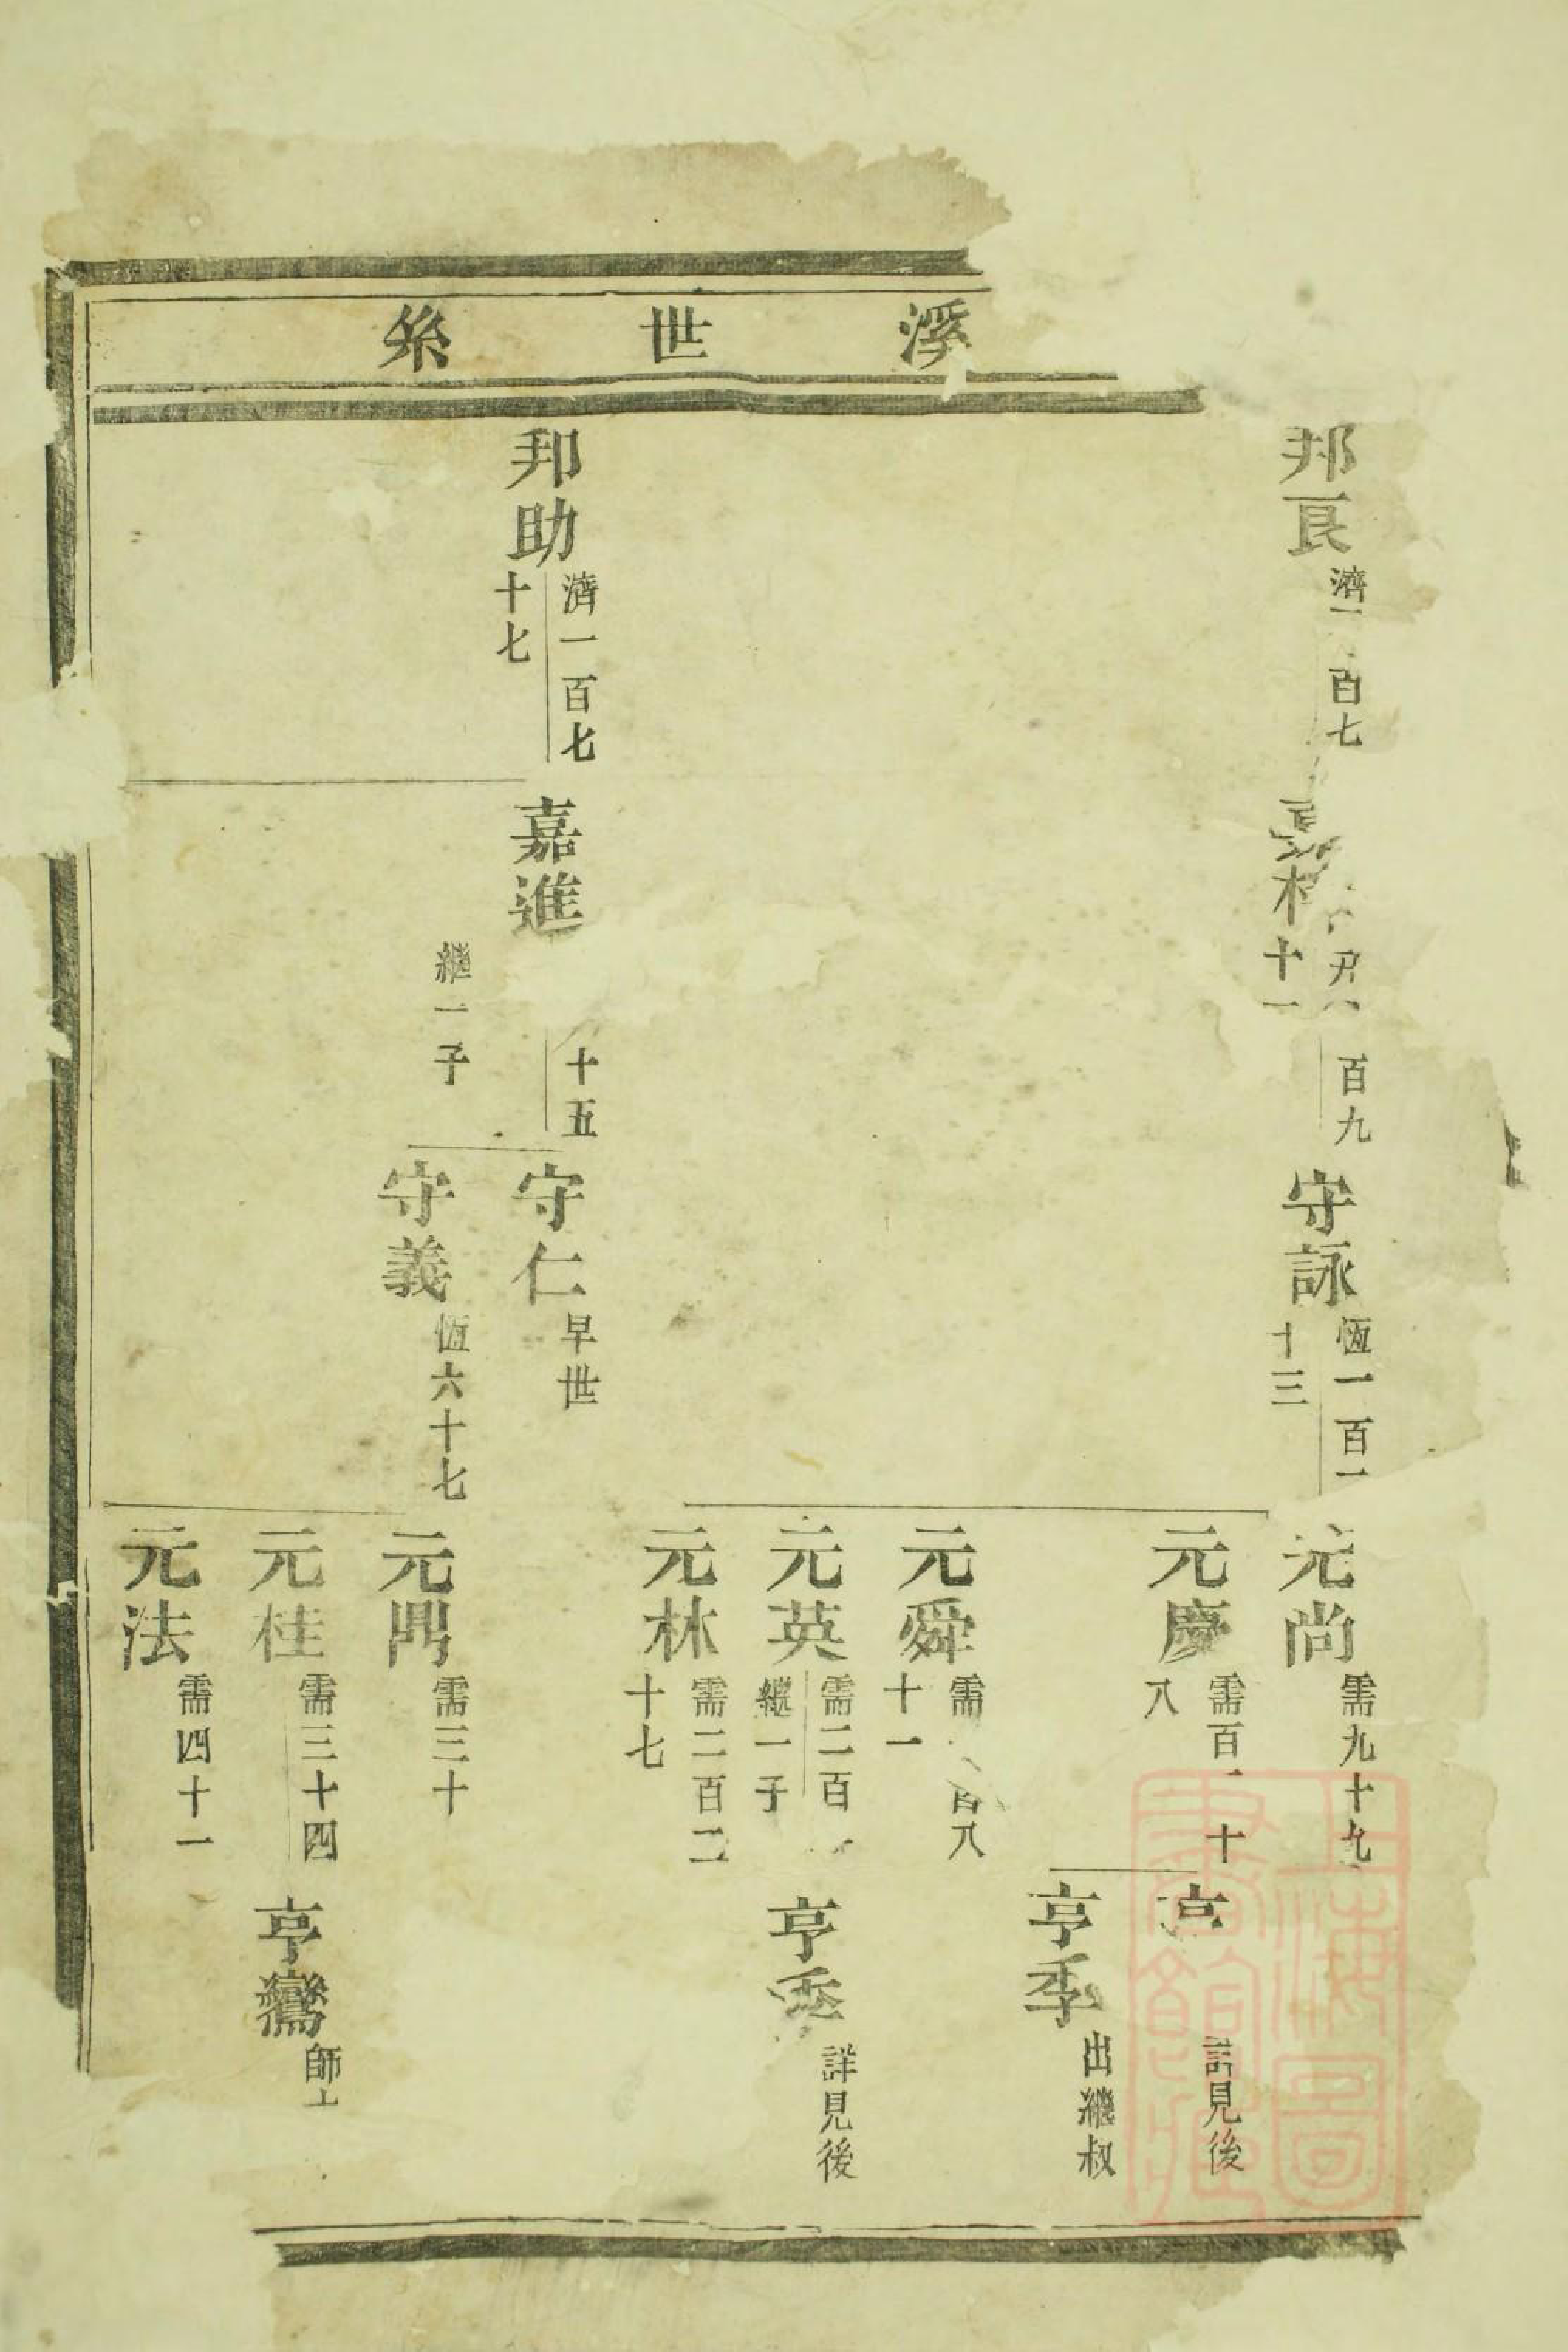 溪世系
邦良
濟一百七
守詠
恆一百一
十三
元尚
需九十九
元慶
需百一十
八
見後
亨季
出繼叔
元舜
需百八
十一
元英
需二百
繼一子
亨
詳見後
元林
需二百二
十七
邦助
濟一百七
十七
嘉進
十五
繼一子
守仁
早世
守義
恆六十七
元鼎
需三十
元桂
需三十四
亨鸞
師
元法
需四十一
上海圖
書館藏